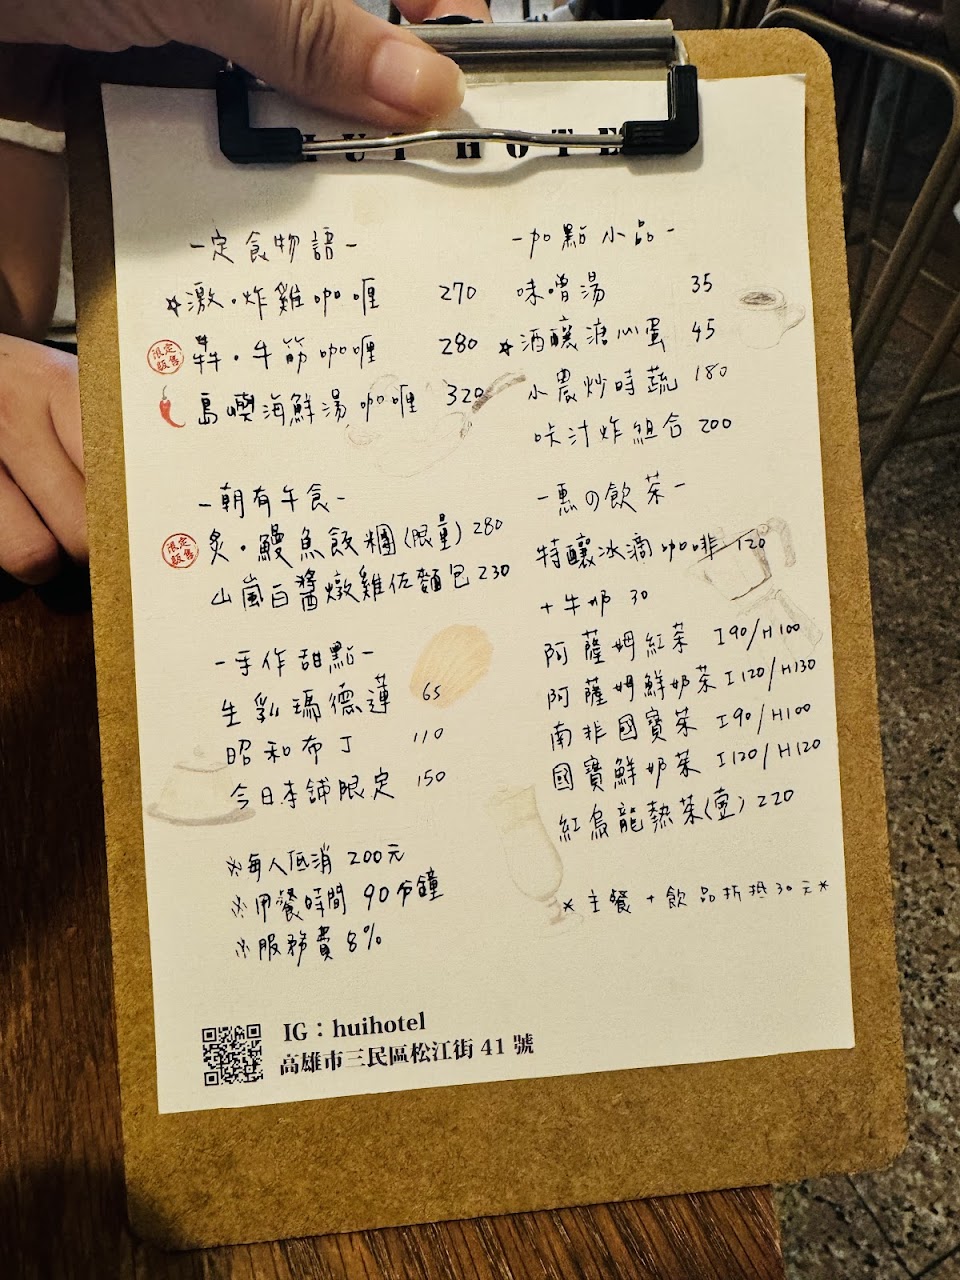 HUI HOTE
-定食物語-
☆激・炸雞咖喱 270
限定販售
犇・牛筋咖喱 280
島嶼海鮮湯咖喱 320
-朝有午食-
限定販售
炙・鰻魚飯糰(限量) 280
山嵐白醬燉雞佐麵包 230
-手作甜點-
生乳瑪德蓮 65
昭和布丁 110
今日本舖限定 150
※每人低消 200元
※用餐時間 90分鐘
※服務費 8%
-加點小品-
味噌湯 35
☆酒釀溏心蛋 45
小農炒時蔬 180
咔汁炸組合 200
-惠の飲茶-
特釀冰滴咖啡 120
+牛奶 30
阿薩姆紅茶 I90/H100
阿薩姆鮮奶茶 I120/H130
南非國寶茶 I90/H100
國寶鮮奶茶 I120/H120
紅烏龍熱茶(壺) 220
*主餐+飲品折抵30元*
IG：huihotel
高雄市三民區松江街 41 號